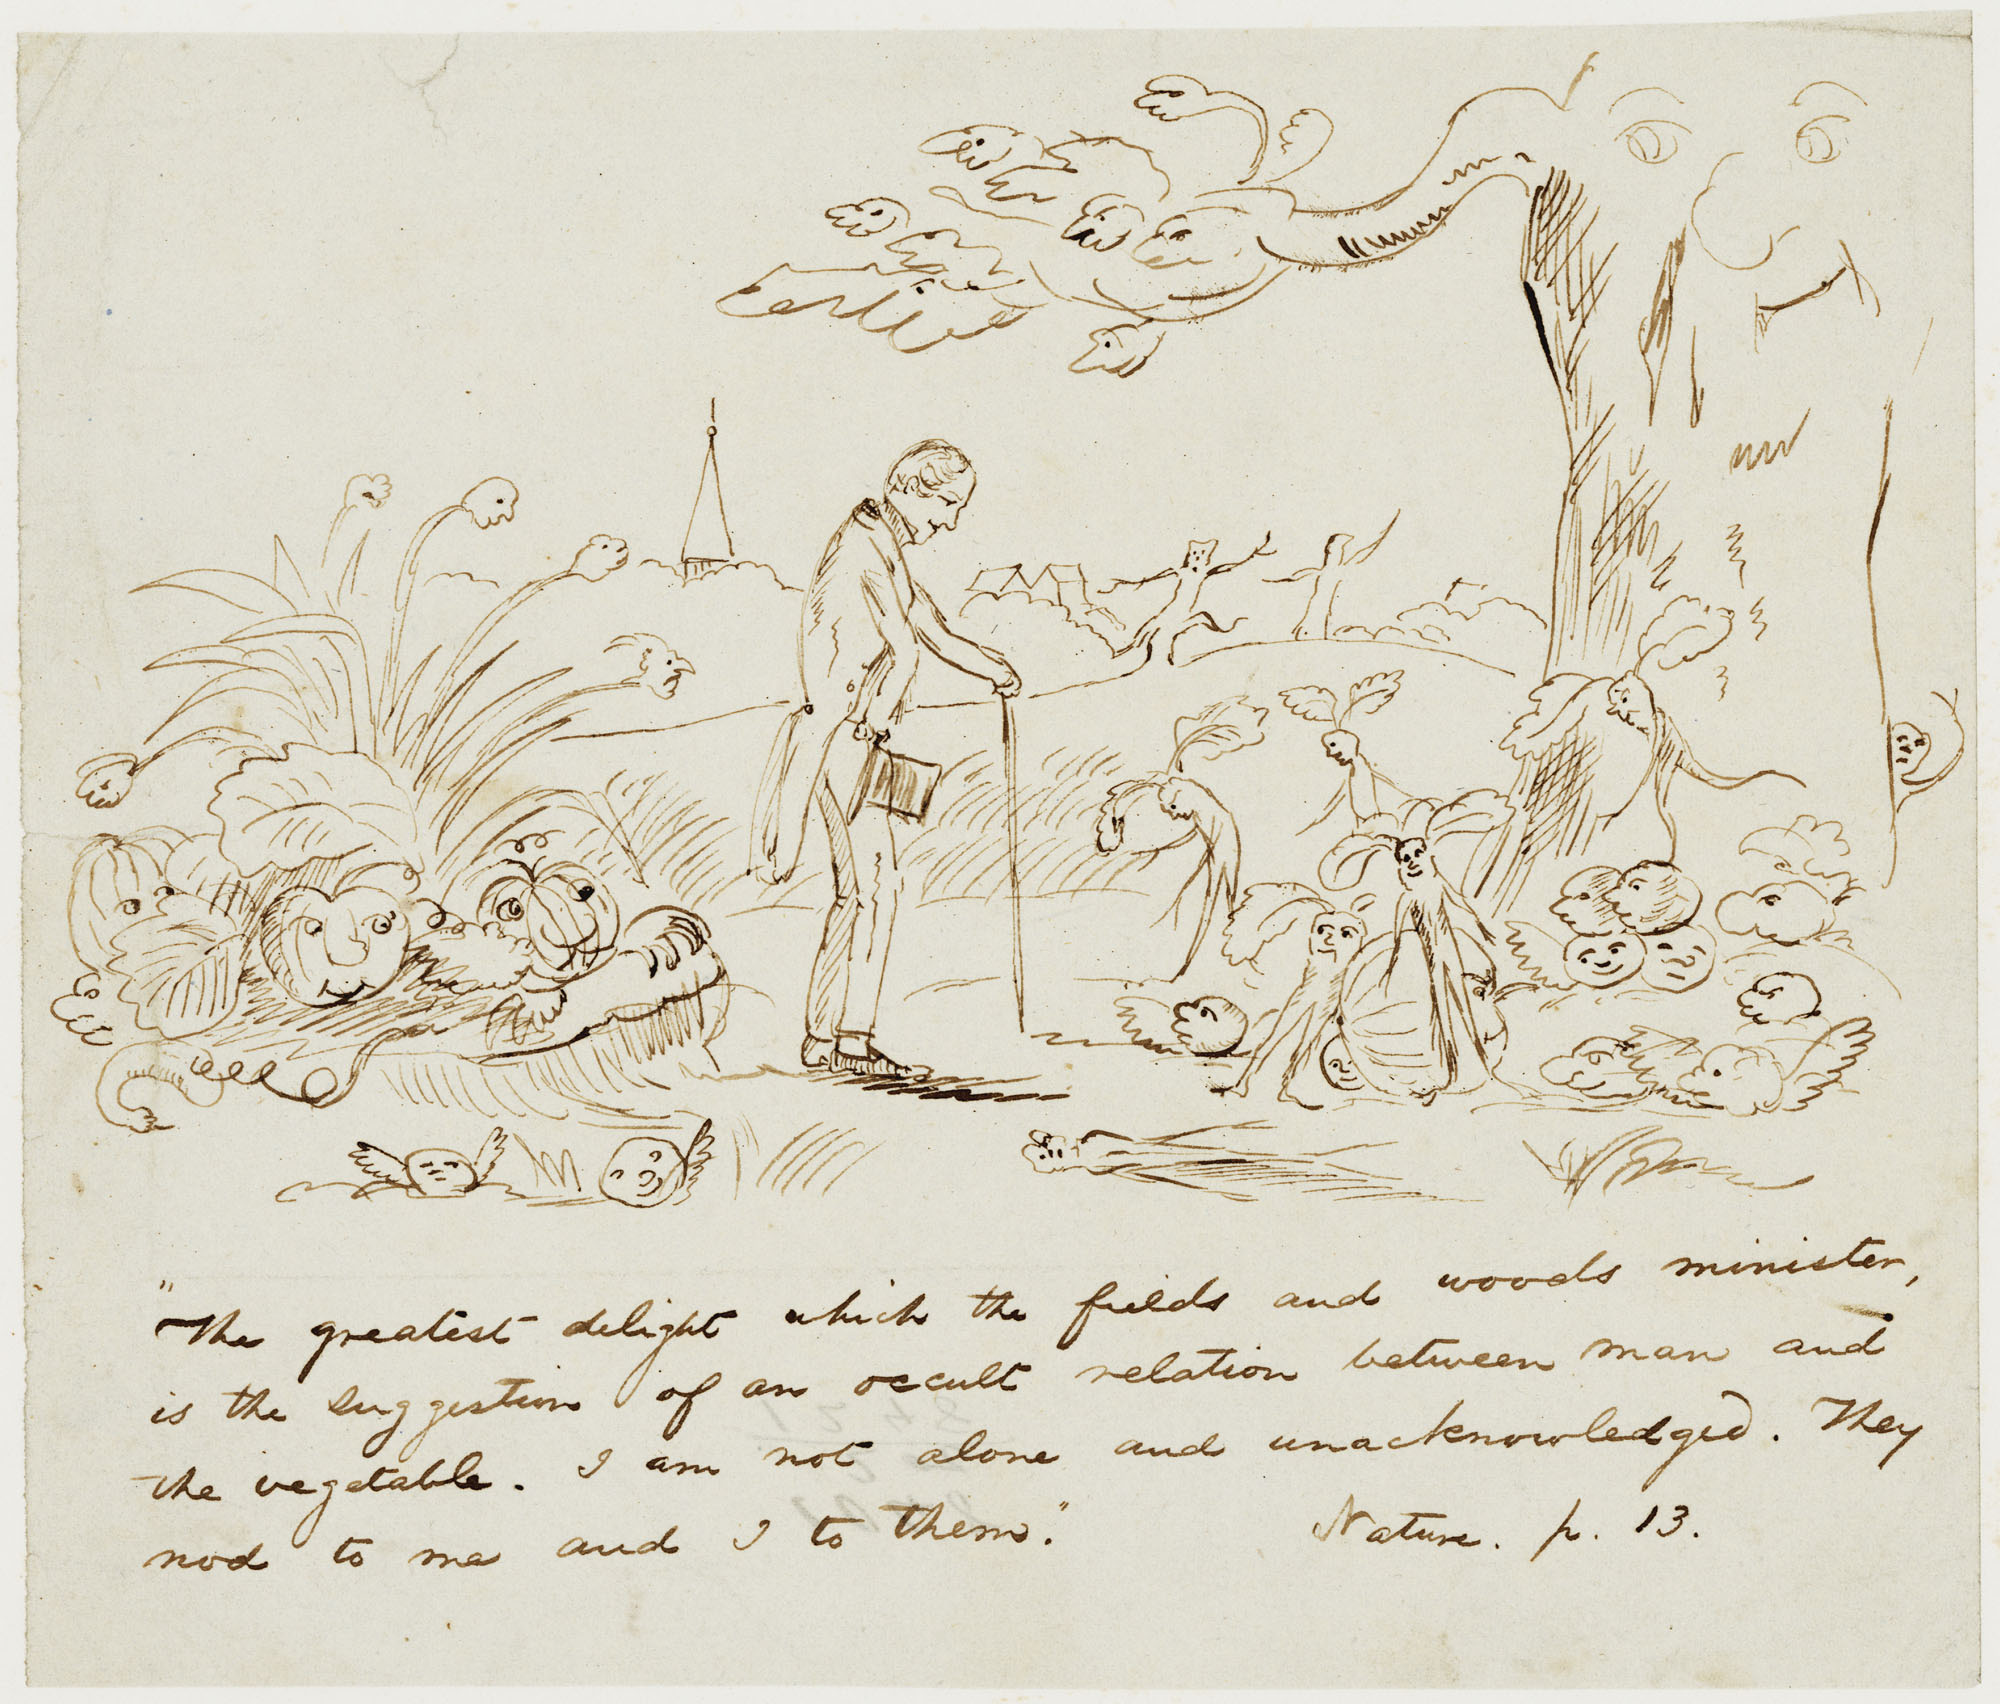 "The greatest delight which the fields and woods minister,
is the suggestion of an occult relation between man and
the vegetable. I am not alone and unacknowledged. They
nod to me and I to them."    Nature. p. 13.